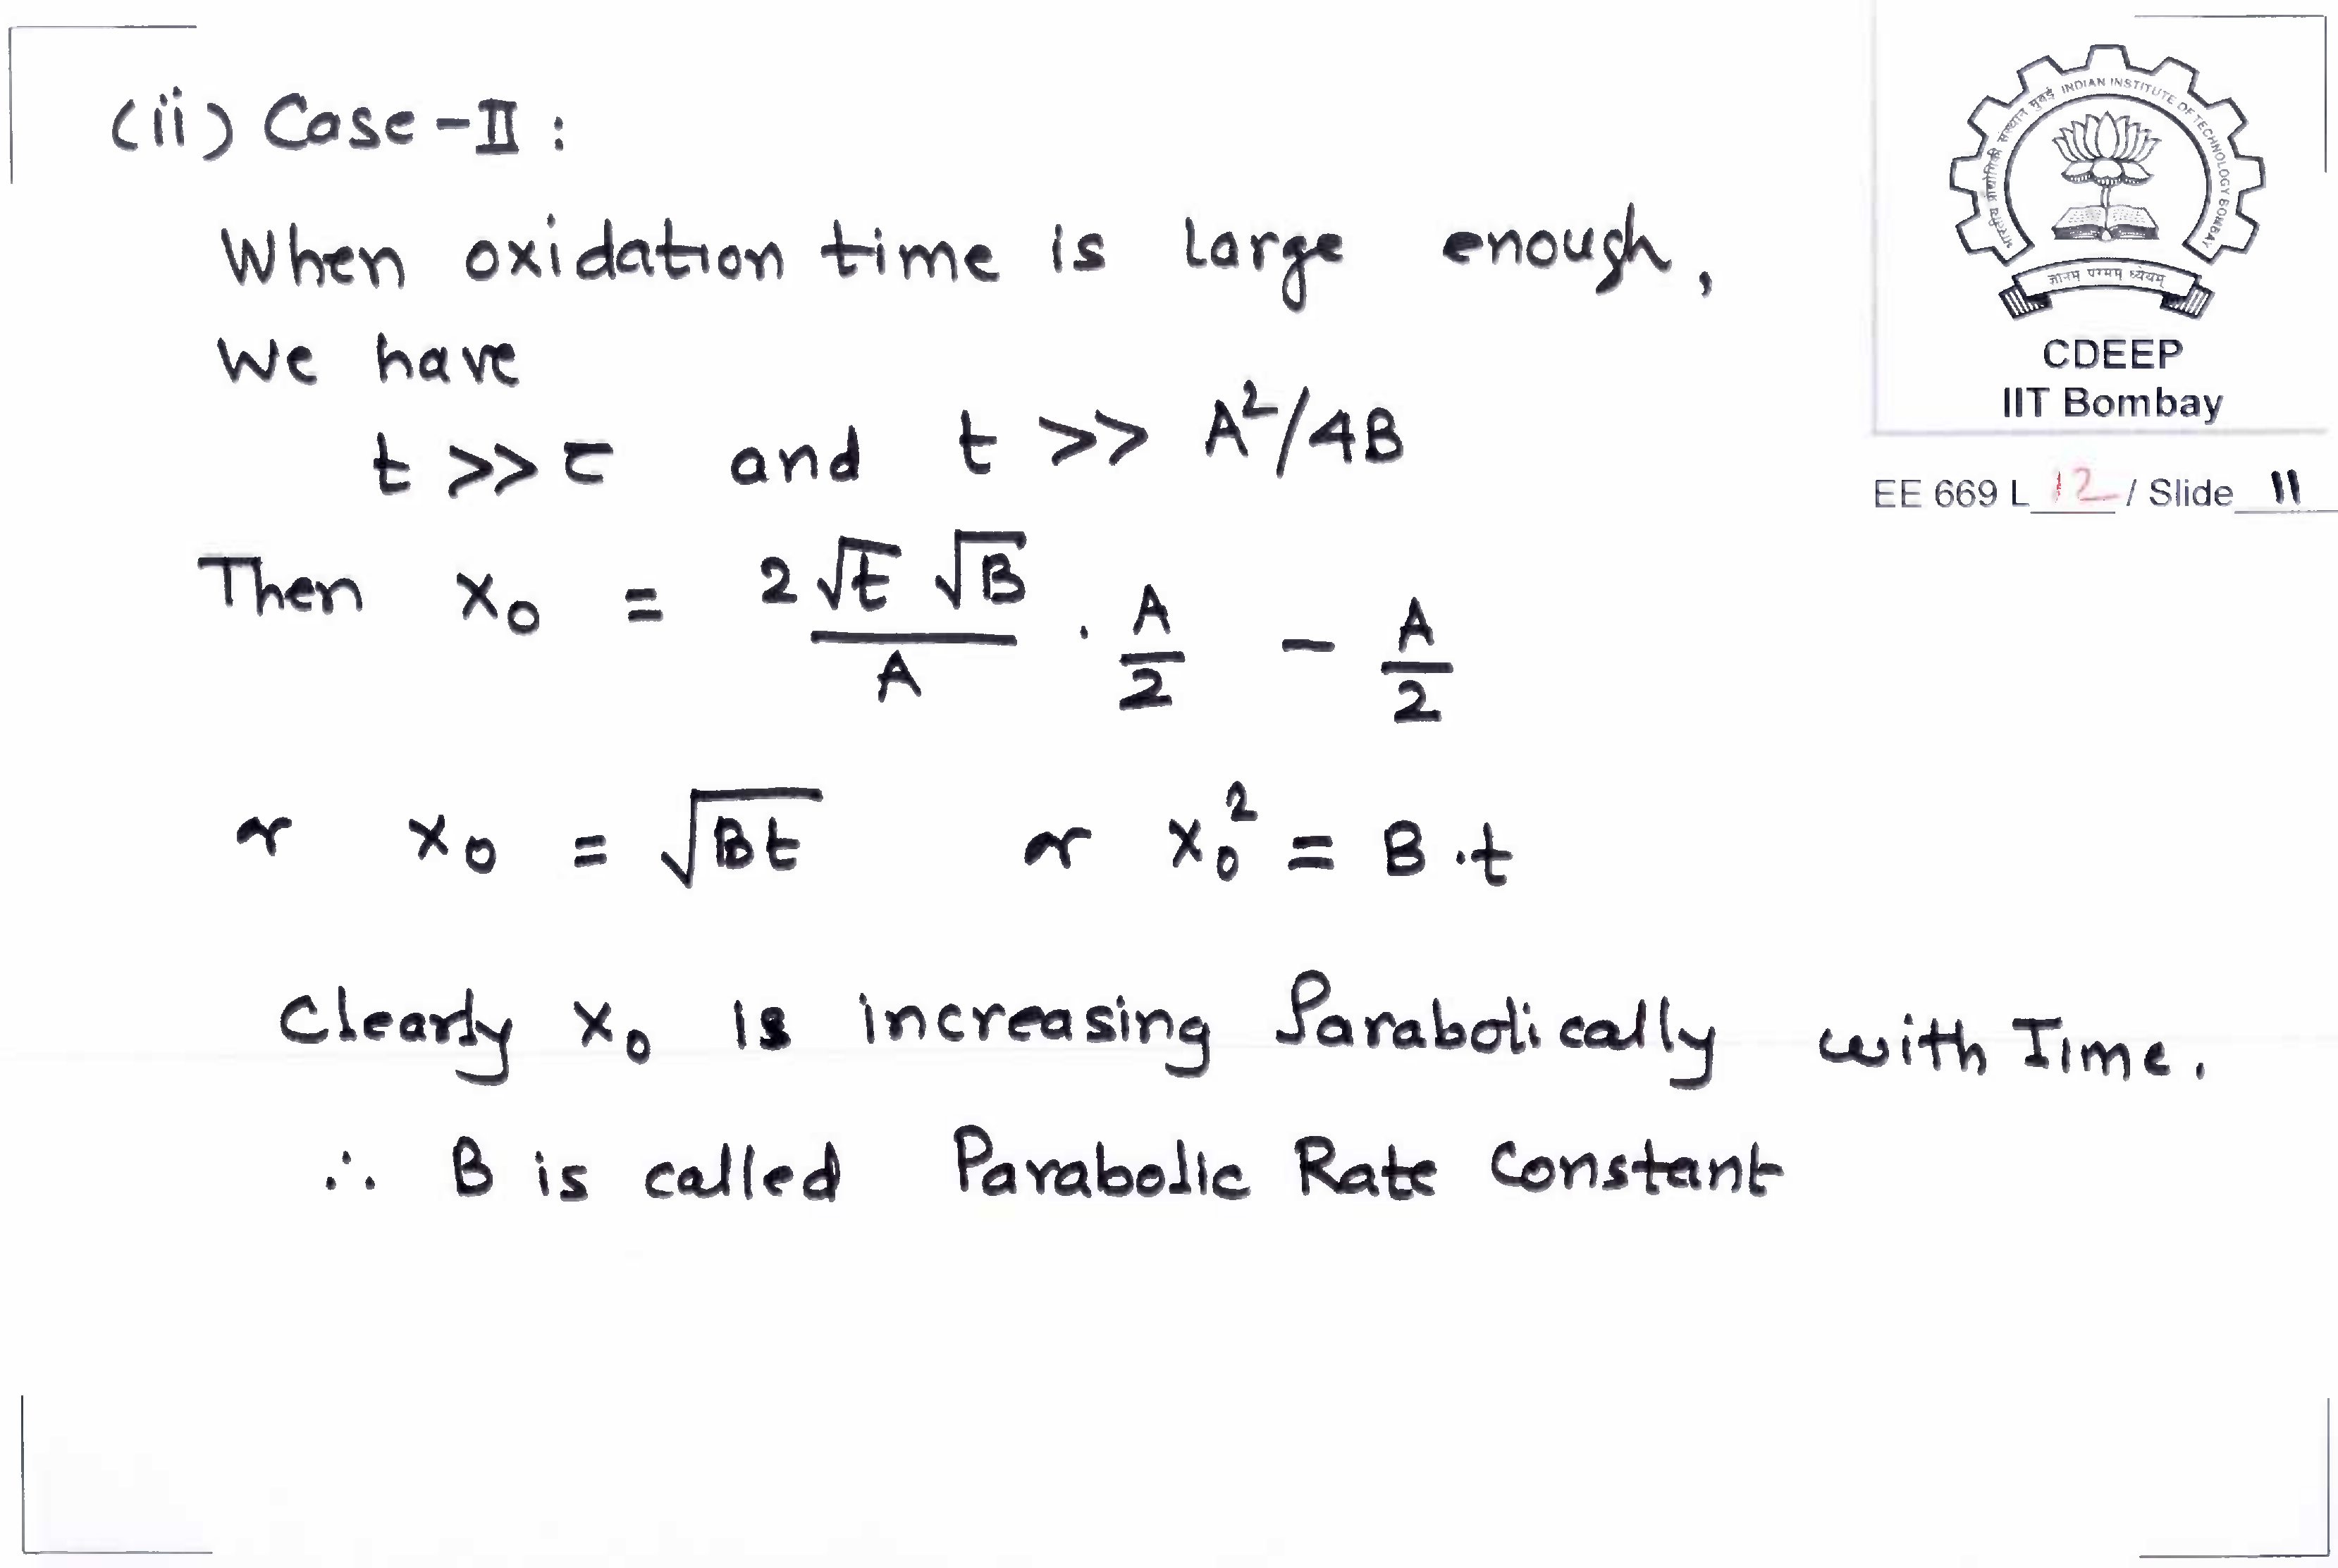 (ii) Case-II :
When oxidation time is large enough,
we have
t >> τ and t >> A²/4B
Then x₀ = 2√t √B / A · A/2 - A/2
or x₀ = √Bt or x₀² = B.t
Clearly x₀ is increasing Parabolically with Time.
∴ B is called Parabolic Rate Constant
भारतीय प्रौद्योगिकी संस्थान मुंबई INDIAN INSTITUTE OF TECHNOLOGY BOMBAY
ज्ञानम् परमम् ध्येयम्
CDEEP
IIT Bombay
EE 669 L 12 / Slide 11